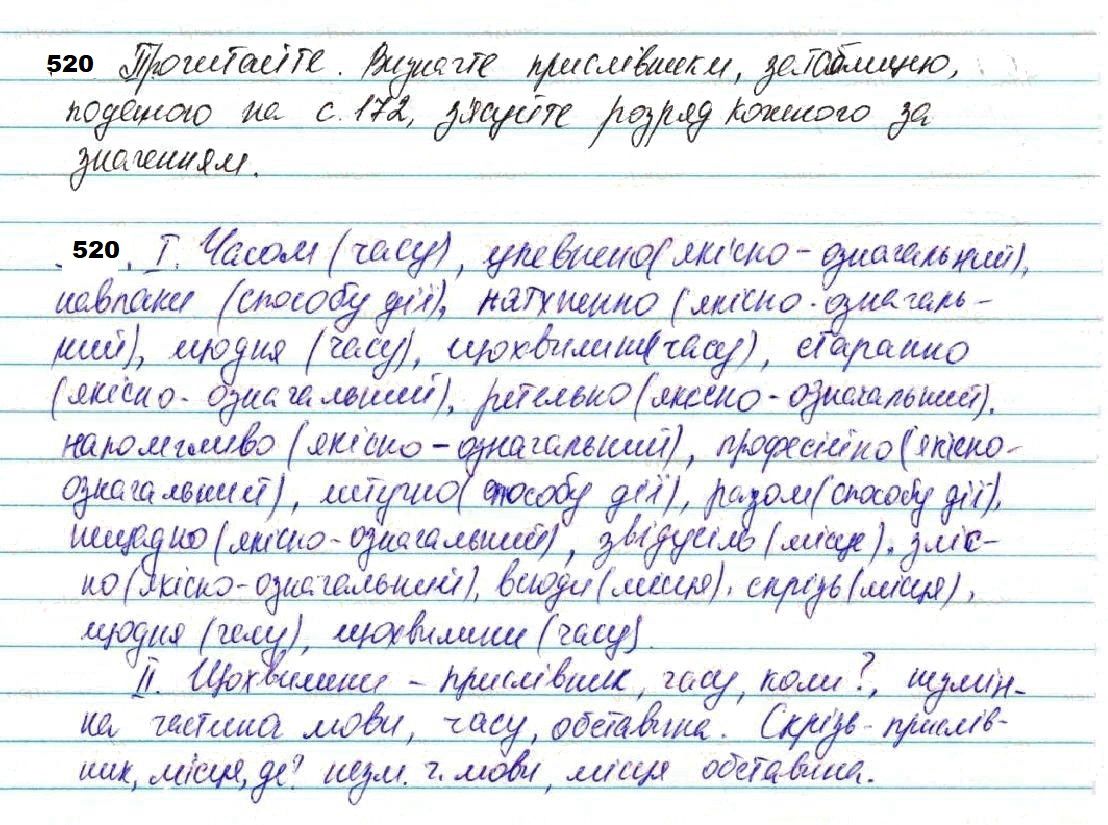 520 Прочитайте. Визначте прислівники, за таблицею,
поданою на с. 172, з'ясуйте розряд кожного за
значенням.
520. І. Часом (часу), упевнено (якісно-означальний),
навпаки (способу дії), натхненно (якісно-означаль-
ний), щодня (часу), щохвилини (часу), старанно
(якісно-означальний), ретельно (якісно-означальний),
наполегливо (якісно-означальний), професійно (якісно-
означальний), штучно (способу дії), разом (способу дії),
нещадно (якісно-означальний), звідусіль (місце), зліс-
но (якісно-означальний), всюди (місця), скрізь (місця),
щодня (часу), щохвилини (часу).
ІІ. Щохвилини – прислівник, часу, коли?, незмін-
на частина мови, часу, обставина. Скрізь - прислів-
ник, місця, де? незм. ч. мови, місця обставина.